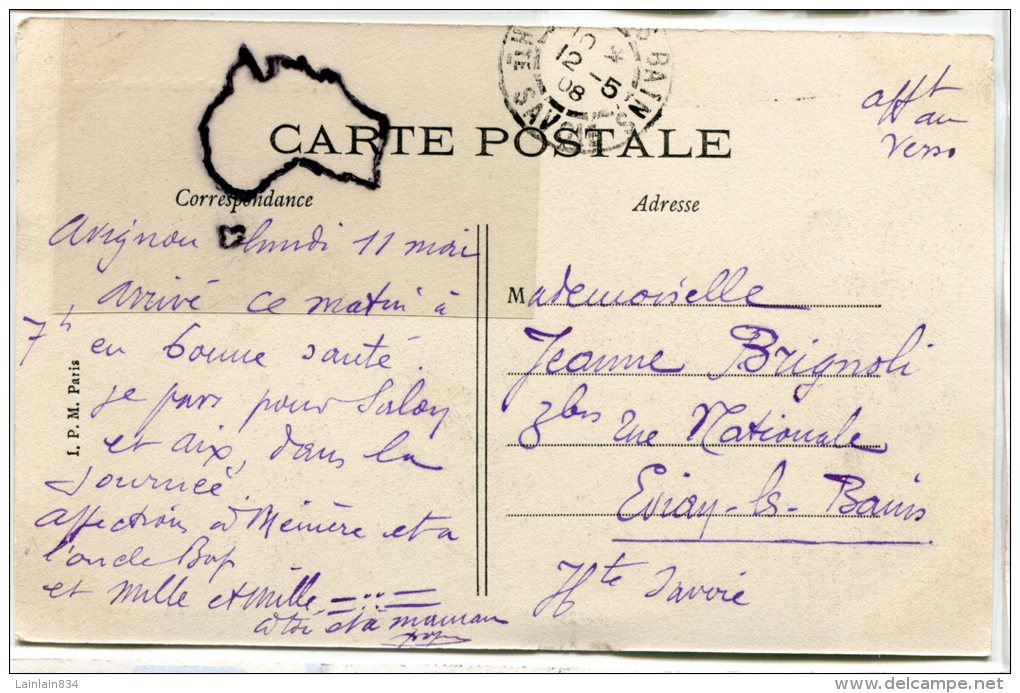 HTE SAVOIE
BAINS
12 -5
08
afft
au
verso
CARTE POSTALE
Correspondance
Adresse
Avignon lundi 11 mai
arrivé ce matin à
7h en bonne santé.
je pars pour Salon
et aix, dans la
journée.
affections à Mémère et a
l'oncle Bap
et mille et mille
a toi et à maman
Mademoiselle
Jeanne Brignoli
3bis rue Nationale
Evian-les-Bains
Hte Savoie
I. P. M. Paris
Lainlain834
delcampe.net